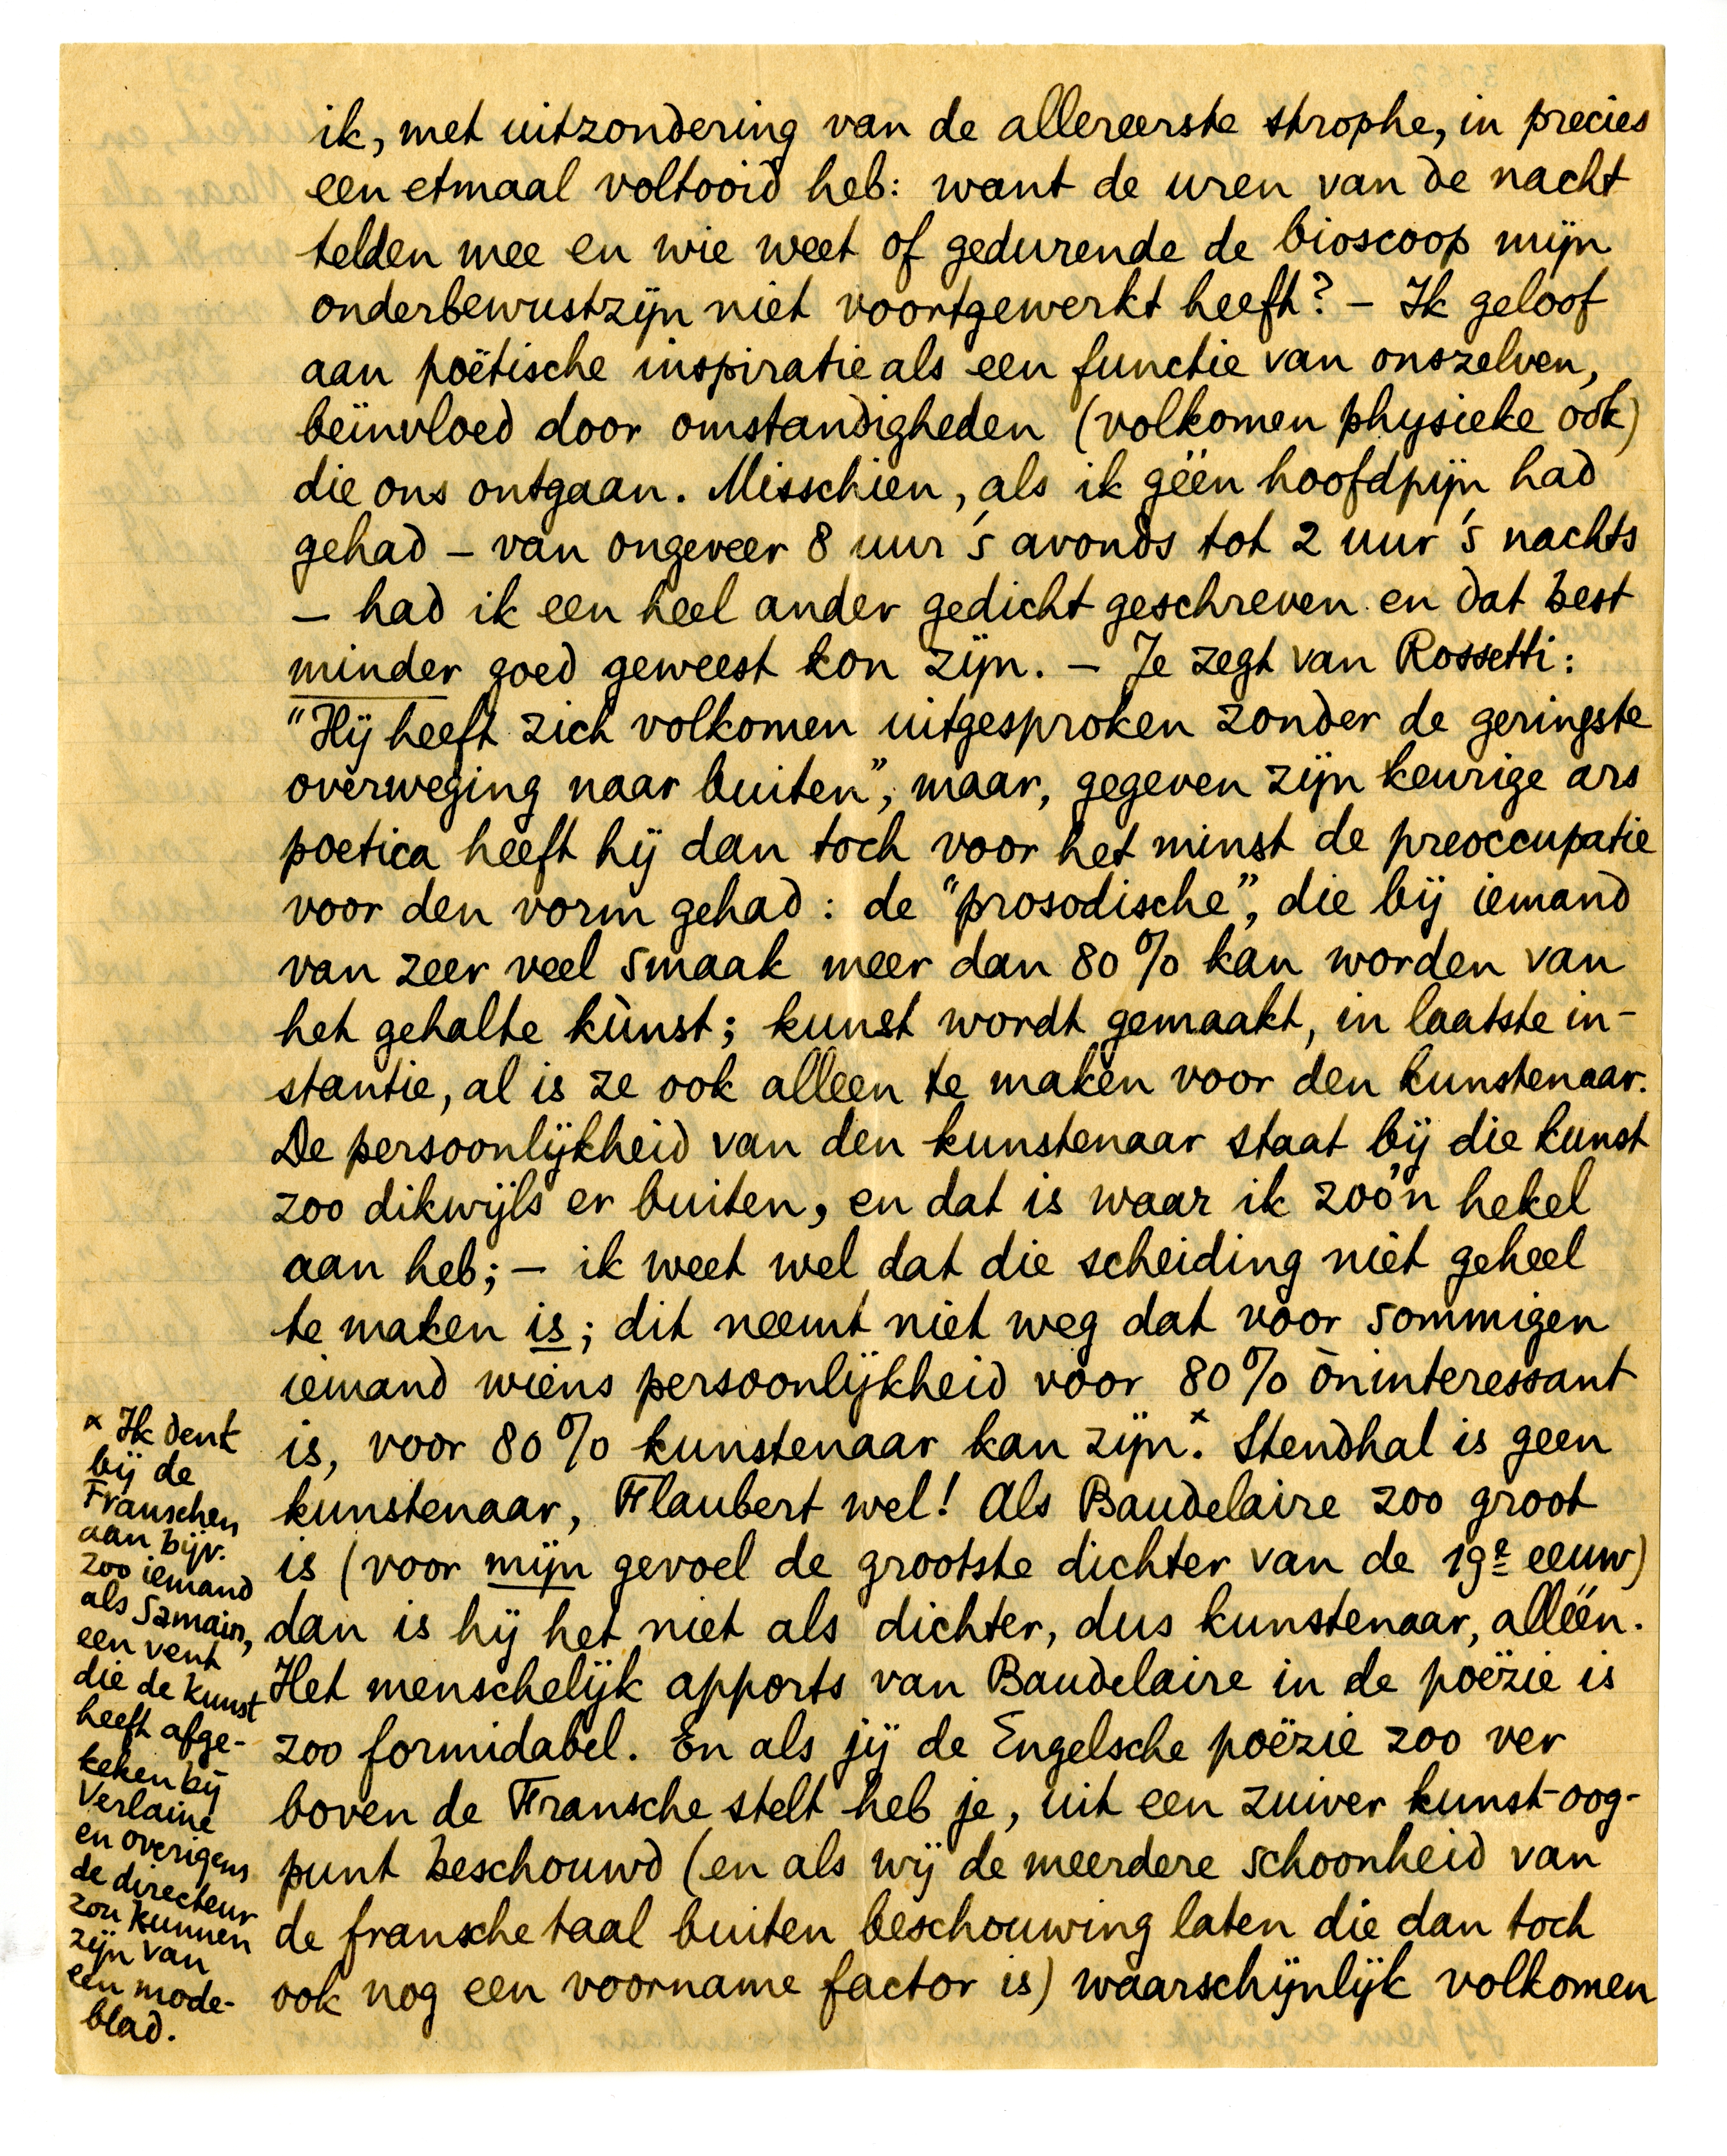 ik, met uitzondering van de allereerste strophe, in precies
een etmaal voltooid heb: want de uren van de nacht
telden mee en wie weet of gedurende de bioscoop mijn
onderbewustzijn niet voortgewerkt heeft? – Ik geloof
aan poëtische inspiratie als een functie van onszelven,
beïnvloed door omstandigheden (volkomen physieke ook)
die ons ontgaan. Misschien, als ik géén hoofdpijn had
gehad – van ongeveer 8 uur 's avonds tot 2 uur 's nachts
– had ik een heel ander gedicht geschreven en dat best
minder goed geweest kon zijn. – Je zegt van Rossetti:
"Hij heeft zich volkomen uitgesproken zonder de geringste
overweging naar buiten", maar, gegeven zijn keurige ars
poetica heeft hij dan toch voor het minst de preoccupatie
voor den vorm gehad: de "prosodische", die bij iemand
van zeer veel smaak meer dan 80% kan worden van
het gehalte kùnst; kunst wordt gemaakt, in laatste in-
stantie, al is ze ook alleen te maken voor den kunstenaar.
De persoonlijkheid van den kunstenaar staat bij die kunst
zoo dikwijls er buiten, en dat is waar ik zoo'n hekel
aan heb; – ik weet wel dat die scheiding niet geheel
te maken is; dit neemt niet weg dat voor sommigen
iemand wiens persoonlijkheid voor 80% òninteressant
is, voor 80% kunstenaar kan zijn.× Stendhal is geen
kunstenaar, Flaubert wel! Als Baudelaire zoo groot
is (voor mijn gevoel de grootste dichter van de 19e eeuw)
dan is hij het niet als dichter, dus kunstenaar, alléén.
Het menschelijk apports van Baudelaire in de poëzie is
zoo formidabel. En als jij de Engelsche poëzie zoo ver
boven de Fransche stelt heb je, uit een zuiver kunst-oog-
punt beschouwd (en als wij de meerdere schoonheid van
de fransche taal buiten beschouwing laten die dan toch
ook nog een voorname factor is) waarschijnlijk volkomen
× Ik denk
bij de
Franschen
aan bijv.
zoo iemand
als Samain,
een vent
die de kunst
heeft afge-
keken bij
Verlaine
en overigens
de directeur
zou kunnen
zijn van
een mode-
blad.